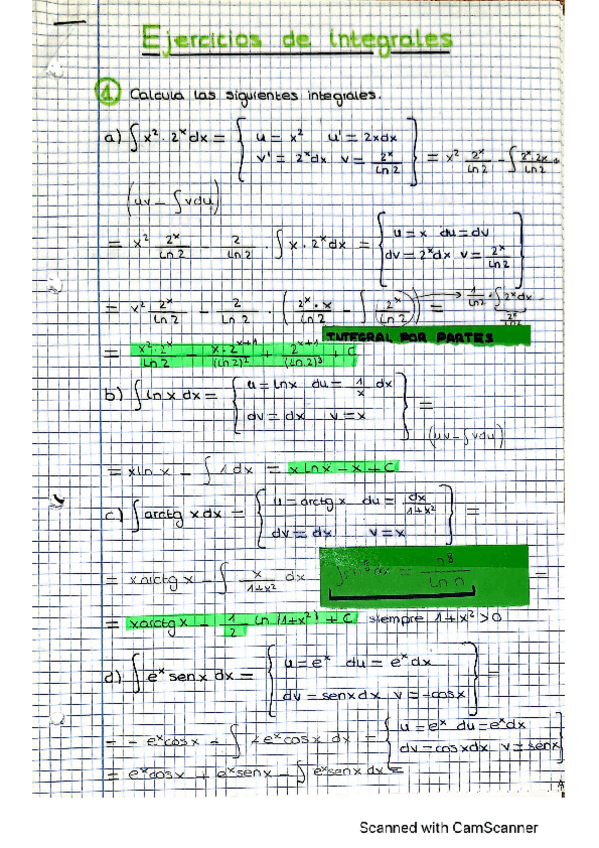 Ejercicios de integrales
1 Calcula las siguientes integrales.
a) ∫ x² · 2ˣ dx = { u = x²   u' = 2xdx
v' = 2ˣdx   v = 2ˣ/Ln 2 } = x² 2ˣ/Ln 2 - ∫ 2ˣ·2x/Ln 2
(uv - ∫ vdu)
= x² 2ˣ/Ln 2 - 2/Ln 2 · ∫ x · 2ˣ dx = { u = x   du = dv
dv = 2ˣdx   v = 2ˣ/Ln 2 }
= x² 2ˣ/Ln 2 - 2/Ln 2 · ( 2ˣ · x/Ln 2 - ∫ 2ˣ/Ln 2 ) → 1/Ln 2 · ∫ 2ˣdx =
INTEGRAL POR PARTES
= x² · 2ˣ/Ln 2 - x · 2ˣ⁺¹/(Ln 2)² + 2ˣ⁺¹/(Ln 2)³ + C
b) ∫ Ln x dx = { u = Lnx   du = 1/x dx
dv = dx   v = x } =
(uv - ∫ vdu)
= xLn x - ∫ 1 dx = x Ln x - x + C
c) ∫ arctg x dx = { u = arctg x   du = dx/1+x²
dv = dx   v = x } =
= xarctg x - ∫ x/1+x² dx =
= xarctg x - 1/2 Ln (1+x²) + C siempre 1+x² > 0
d) ∫ eˣ sen x dx = { u = eˣ   du = eˣ dx
dv = senx dx   v = -cosx } =
= - eˣ cos x - ∫ eˣ cos x dx = { u = eˣ   du = eˣdx
dv = cosxdx   v = senx }
= eˣ cos x + eˣ sen x - ∫ eˣ sen x dx =
Scanned with CamScanner